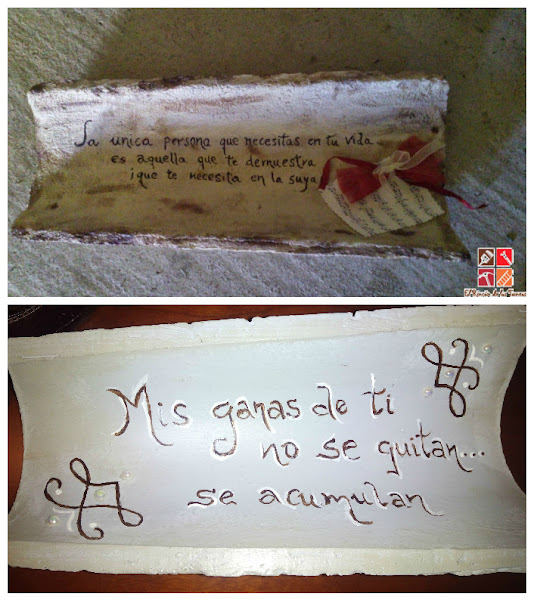 La única persona que necesitas en tu vida
es aquella que te demuestra
¡que te necesita en la suya
Mis ganas de ti
no se quitan...
se acumulan